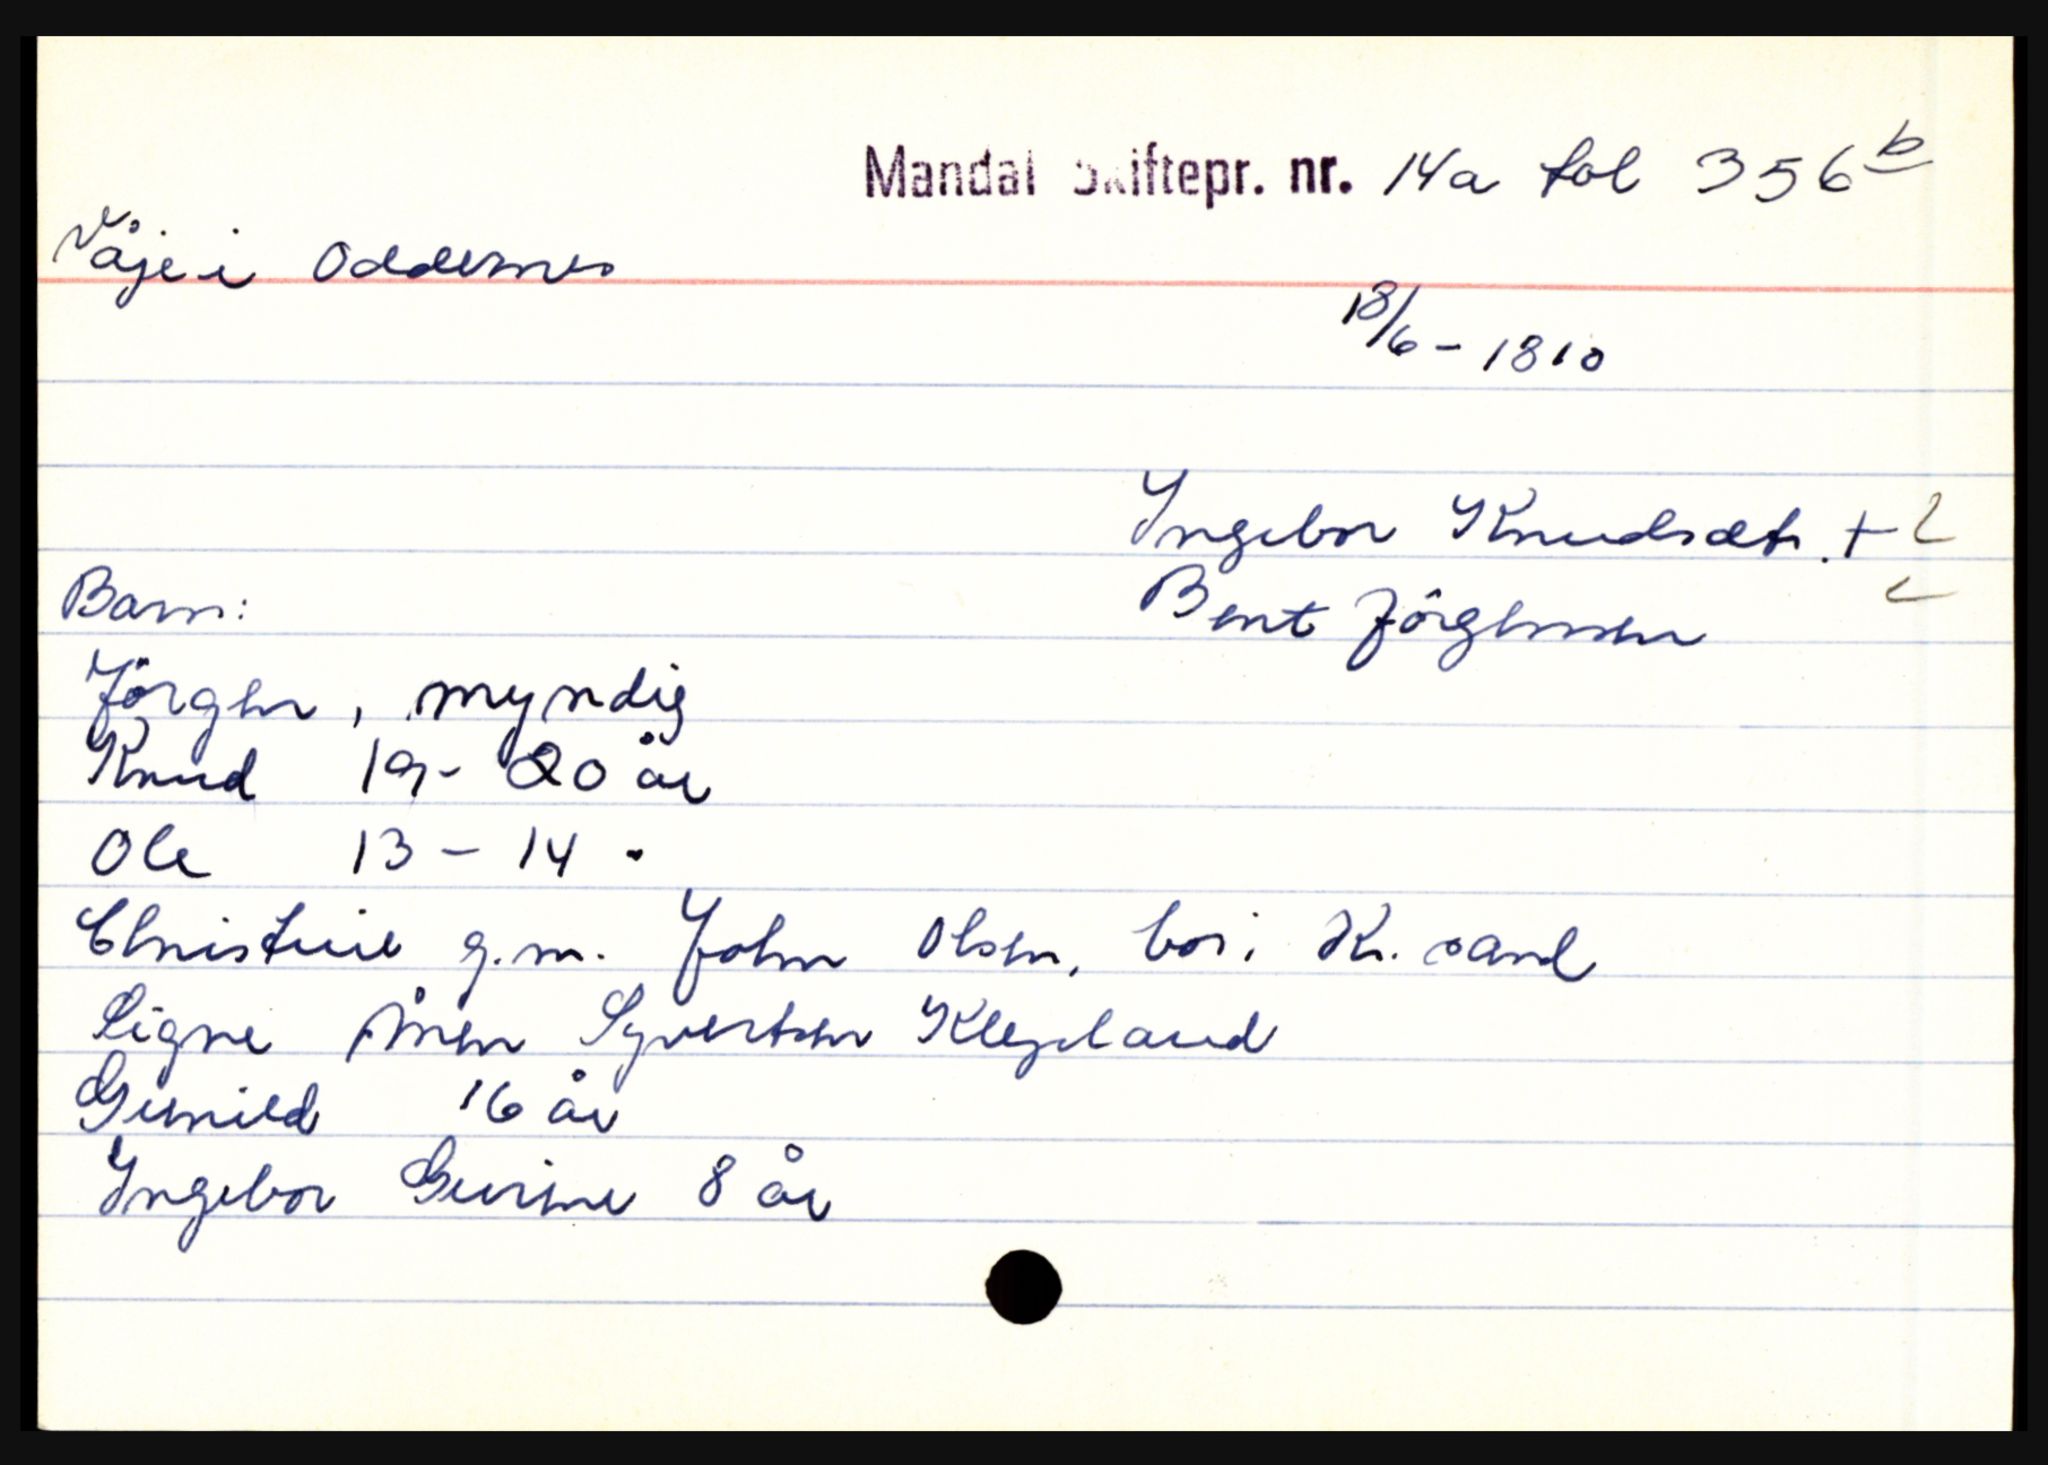 Mandal Skiftepr. nr. 14a fol 356 b
Våje i Oddernes
18/6 - 1810
Ingebor Knudsdtr. +
Bent Jörgensen
Barn:
Jörgen, myndig
Knud 19- 20 år
Ole 13 - 14 "
Christine g.m. John Olsen, bor i Kr. sand
Signe Ånen Syvertsen Klepland
Gunild 16 år
Ingebor Gurine 8 år